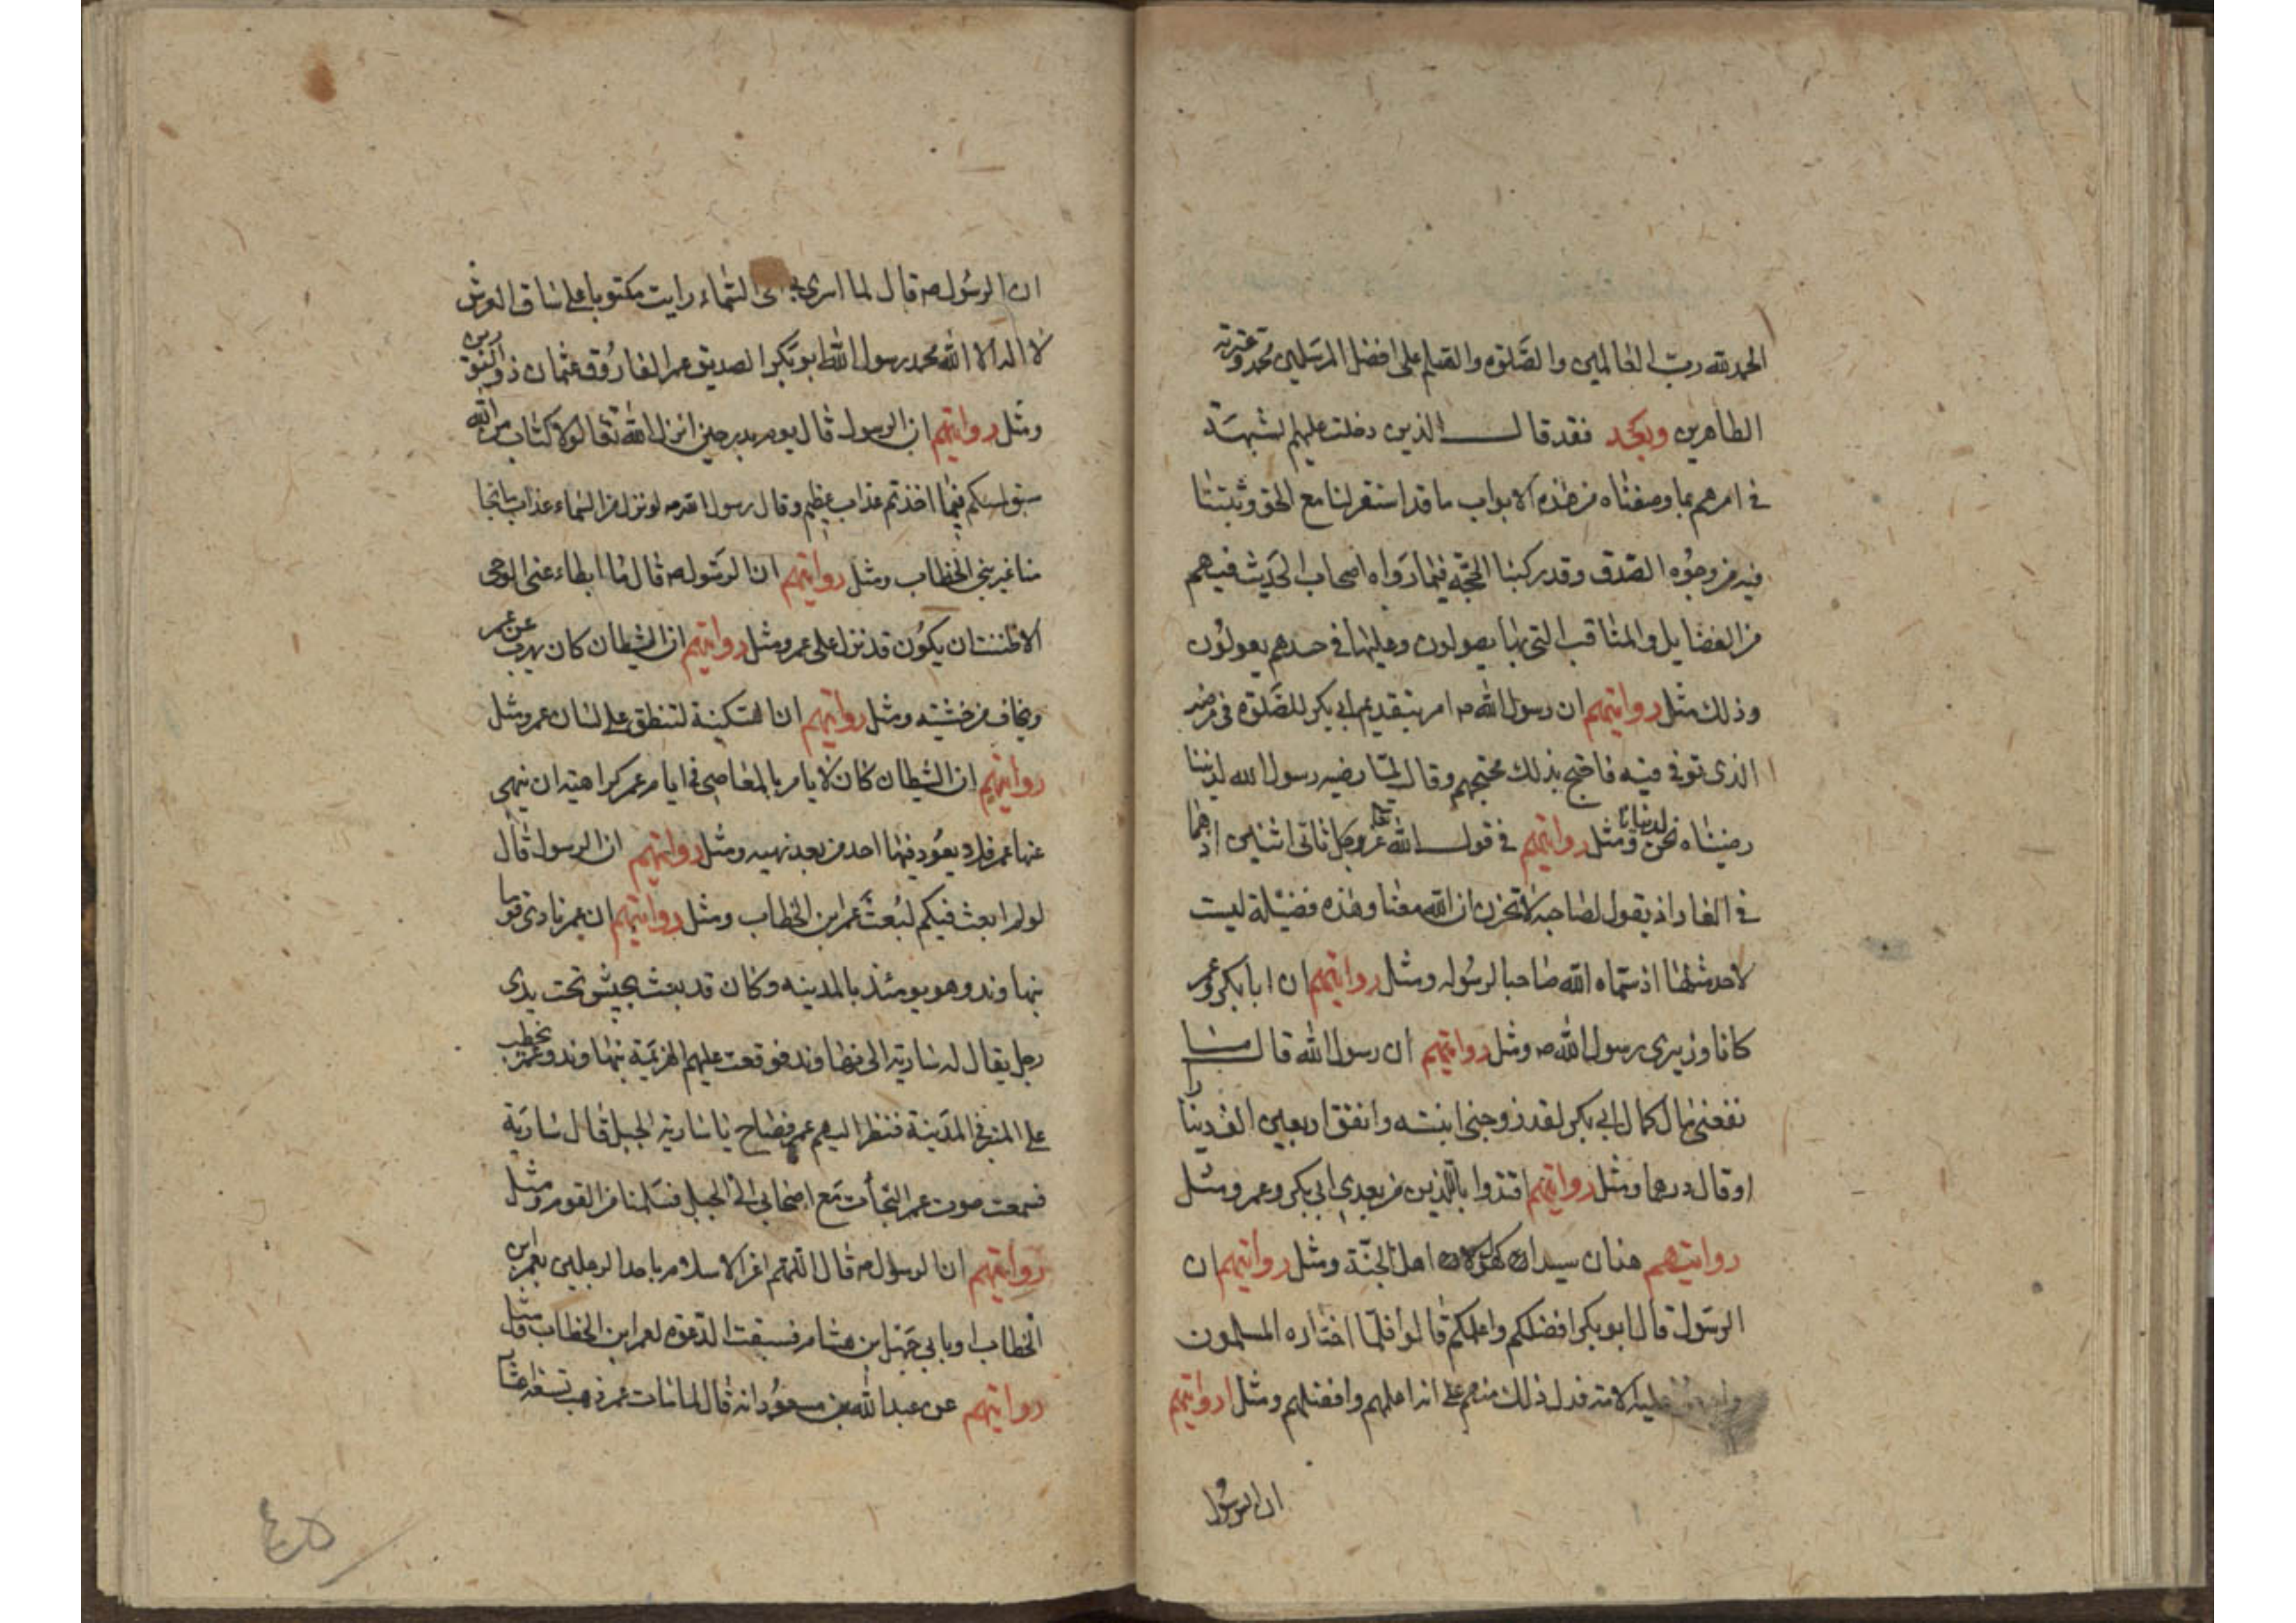 الحمد لله رب العالمين والصلوة والسلم على افضل المرسلين محمد وعترته
الطاهرين وبعد فقد قال الذين دخلت عليهم لشبهة
في امرهم بما وصفناه من هذه الابواب ما قد استقر لنا مع الحق وثبتنا
فيه من وجوه الصدق وقد ركبنا الحجة فيما رواه اصحاب الحديث فيهم
من الفضايل والمناقب التي بها يصولون وعليها في حسدهم يعولون
وذلك مثل روايتهم ان رسول الله ص امر بتقديم ابي بكر للصلوة في مرضه
الذي توفي فيه فاحتج بذلك محتجهم وقال لما رضيه رسول الله لديننا
رضيناه نحن لدنيانا ومثل روايتهم في قول الله عز وجل ثاني اثنين اذ هما
في الغار اذ يقول لصاحبه لا تحزن ان الله معنا وهذه فضيلة ليست
لاحد مثلها اذ سماه الله صاحبا لرسوله ومثل روايتهم ان ابا بكر وعمر
كانا وزيري رسول الله ص ومثل روايتهم ان رسول الله قال ما
نفعني مال كمال ابي بكر لقد زوجني ابنته وانفق اربعين الف دينارا
او قال درهما ومثل روايتهم اقتدوا بالذين من بعدي ابي بكر وعمر ومثل
روايتهم هذان سيدان كهولان اهل الجنة ومثل روايتهم ان
الرسول قال ابو بكر افضلكم واعلمكم قالوا فلما اختاره المسلمون
عليه الامة فدل ذلك منهم على انه اعلمهم وافضلهم ومثل روايتهم
ان الرسول
ان الرسول ص قال لما اسري بي الى السماء رايت مكتوبا على ساق العرش
لا اله الا الله محمد رسول الله ابو بكر الصديق عمر الفاروق عثمان ذو النورين
ومثل روايتهم ان الرسول قال يوم بدر حين انزل الله تعالى لولا كتاب من الله
سبق لمسكم فيما اخذتم عذاب عظيم وقال رسول الله ص لو نزل من السماء عذاب ما نجا
منا غير بني الخطاب ومثل روايتهم ان الرسول ص قال ما ابطاء عني الوحي
الا ظننت ان يكون قد نزل على عمر ومثل روايتهم ان الشيطان كان يهرب عن عمر
ويخاف من خشيته ومثل روايتهم ان السكينة لتنطق على لسان عمر ومثل
روايتهم ان الشيطان كان لا يامر بالمعاصي في ايام عمر كراهية ان ينهى
عنها عمر فلا يعود فيها احد من بعد نهيه ومثل روايتهم ان الرسول قال
لو لم ابعث فيكم لبعث عمر ابن الخطاب ومثل روايتهم ان عمر نادى قوما
بنهاوند وهو يومئذ بالمدينه وكان قد بعث بجيش تحت يدي
رجل يقال له سارية الى نهاوند فوقعت عليهم الهزيمة بنهاوند وعمر يخطب
على المنبر في المدينة فنظر اليهم عمر فصاح يا سارية الجبل قال سارية
فسمعت صوت عمر التجأت مع اصحابي الى الجبل فسلمنا من القوم ومثل
روايتهم ان الرسول ص قال اللهم اعز الاسلام باحد الرجلين بعمر ابن
الخطاب او بابي جهل ابن هشام فسبقت الدعوة لعمر ابن الخطاب ومثل
روايتهم عن عبد الله بن مسعود انه قال لما مات عمر ذهب تسعة اعشار